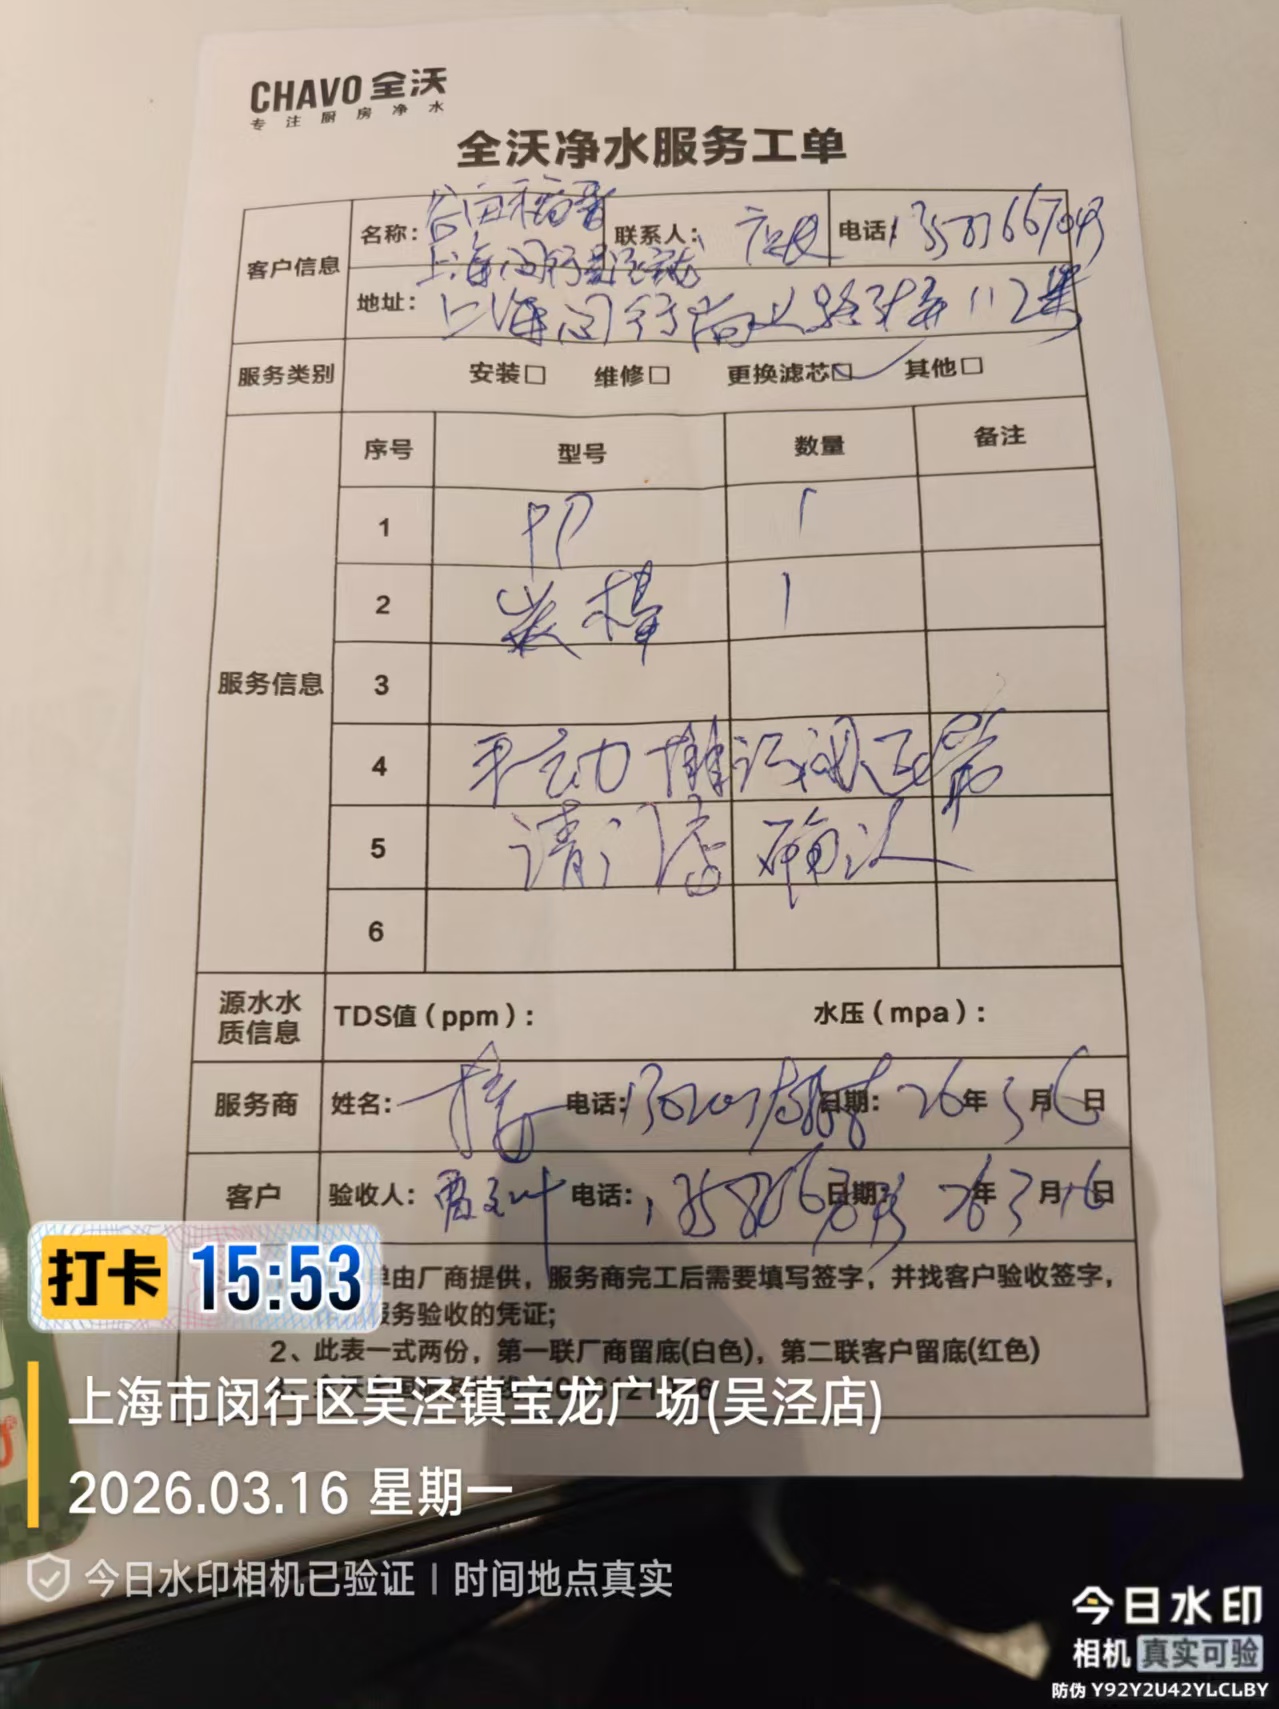 CHAVO 全沃
专注厨房净水
全沃净水服务工单
客户信息
名称：谷田稻香
上海闵行吴泾宝龙
联系人：
电话：
地址：上海闵行尚义路
服务类别 安装□ 维修□ 更换滤芯□✓ 其他□
服务信息
序号 型号 数量 备注
1 PP 1
2 炭棒 1
3
4 平衡
5 请门店确认
6
源水水质信息 TDS值（ppm）： 水压（mpa）：
服务商 姓名： 电话： 日期：26年3月16日
客户 验收人： 电话： 日期：26年3月16日
单由厂商提供，服务商完工后需要填写签字，并找客户验收签字，
服务验收的凭证；
2、此表一式两份，第一联厂商留底(白色)，第二联客户留底(红色)
打卡 15:53
上海市闵行区吴泾镇宝龙广场(吴泾店)
2026.03.16 星期一
今日水印相机已验证 | 时间地点真实
今日水印
相机 真实可验
防伪 Y92Y2U42YLCLBY